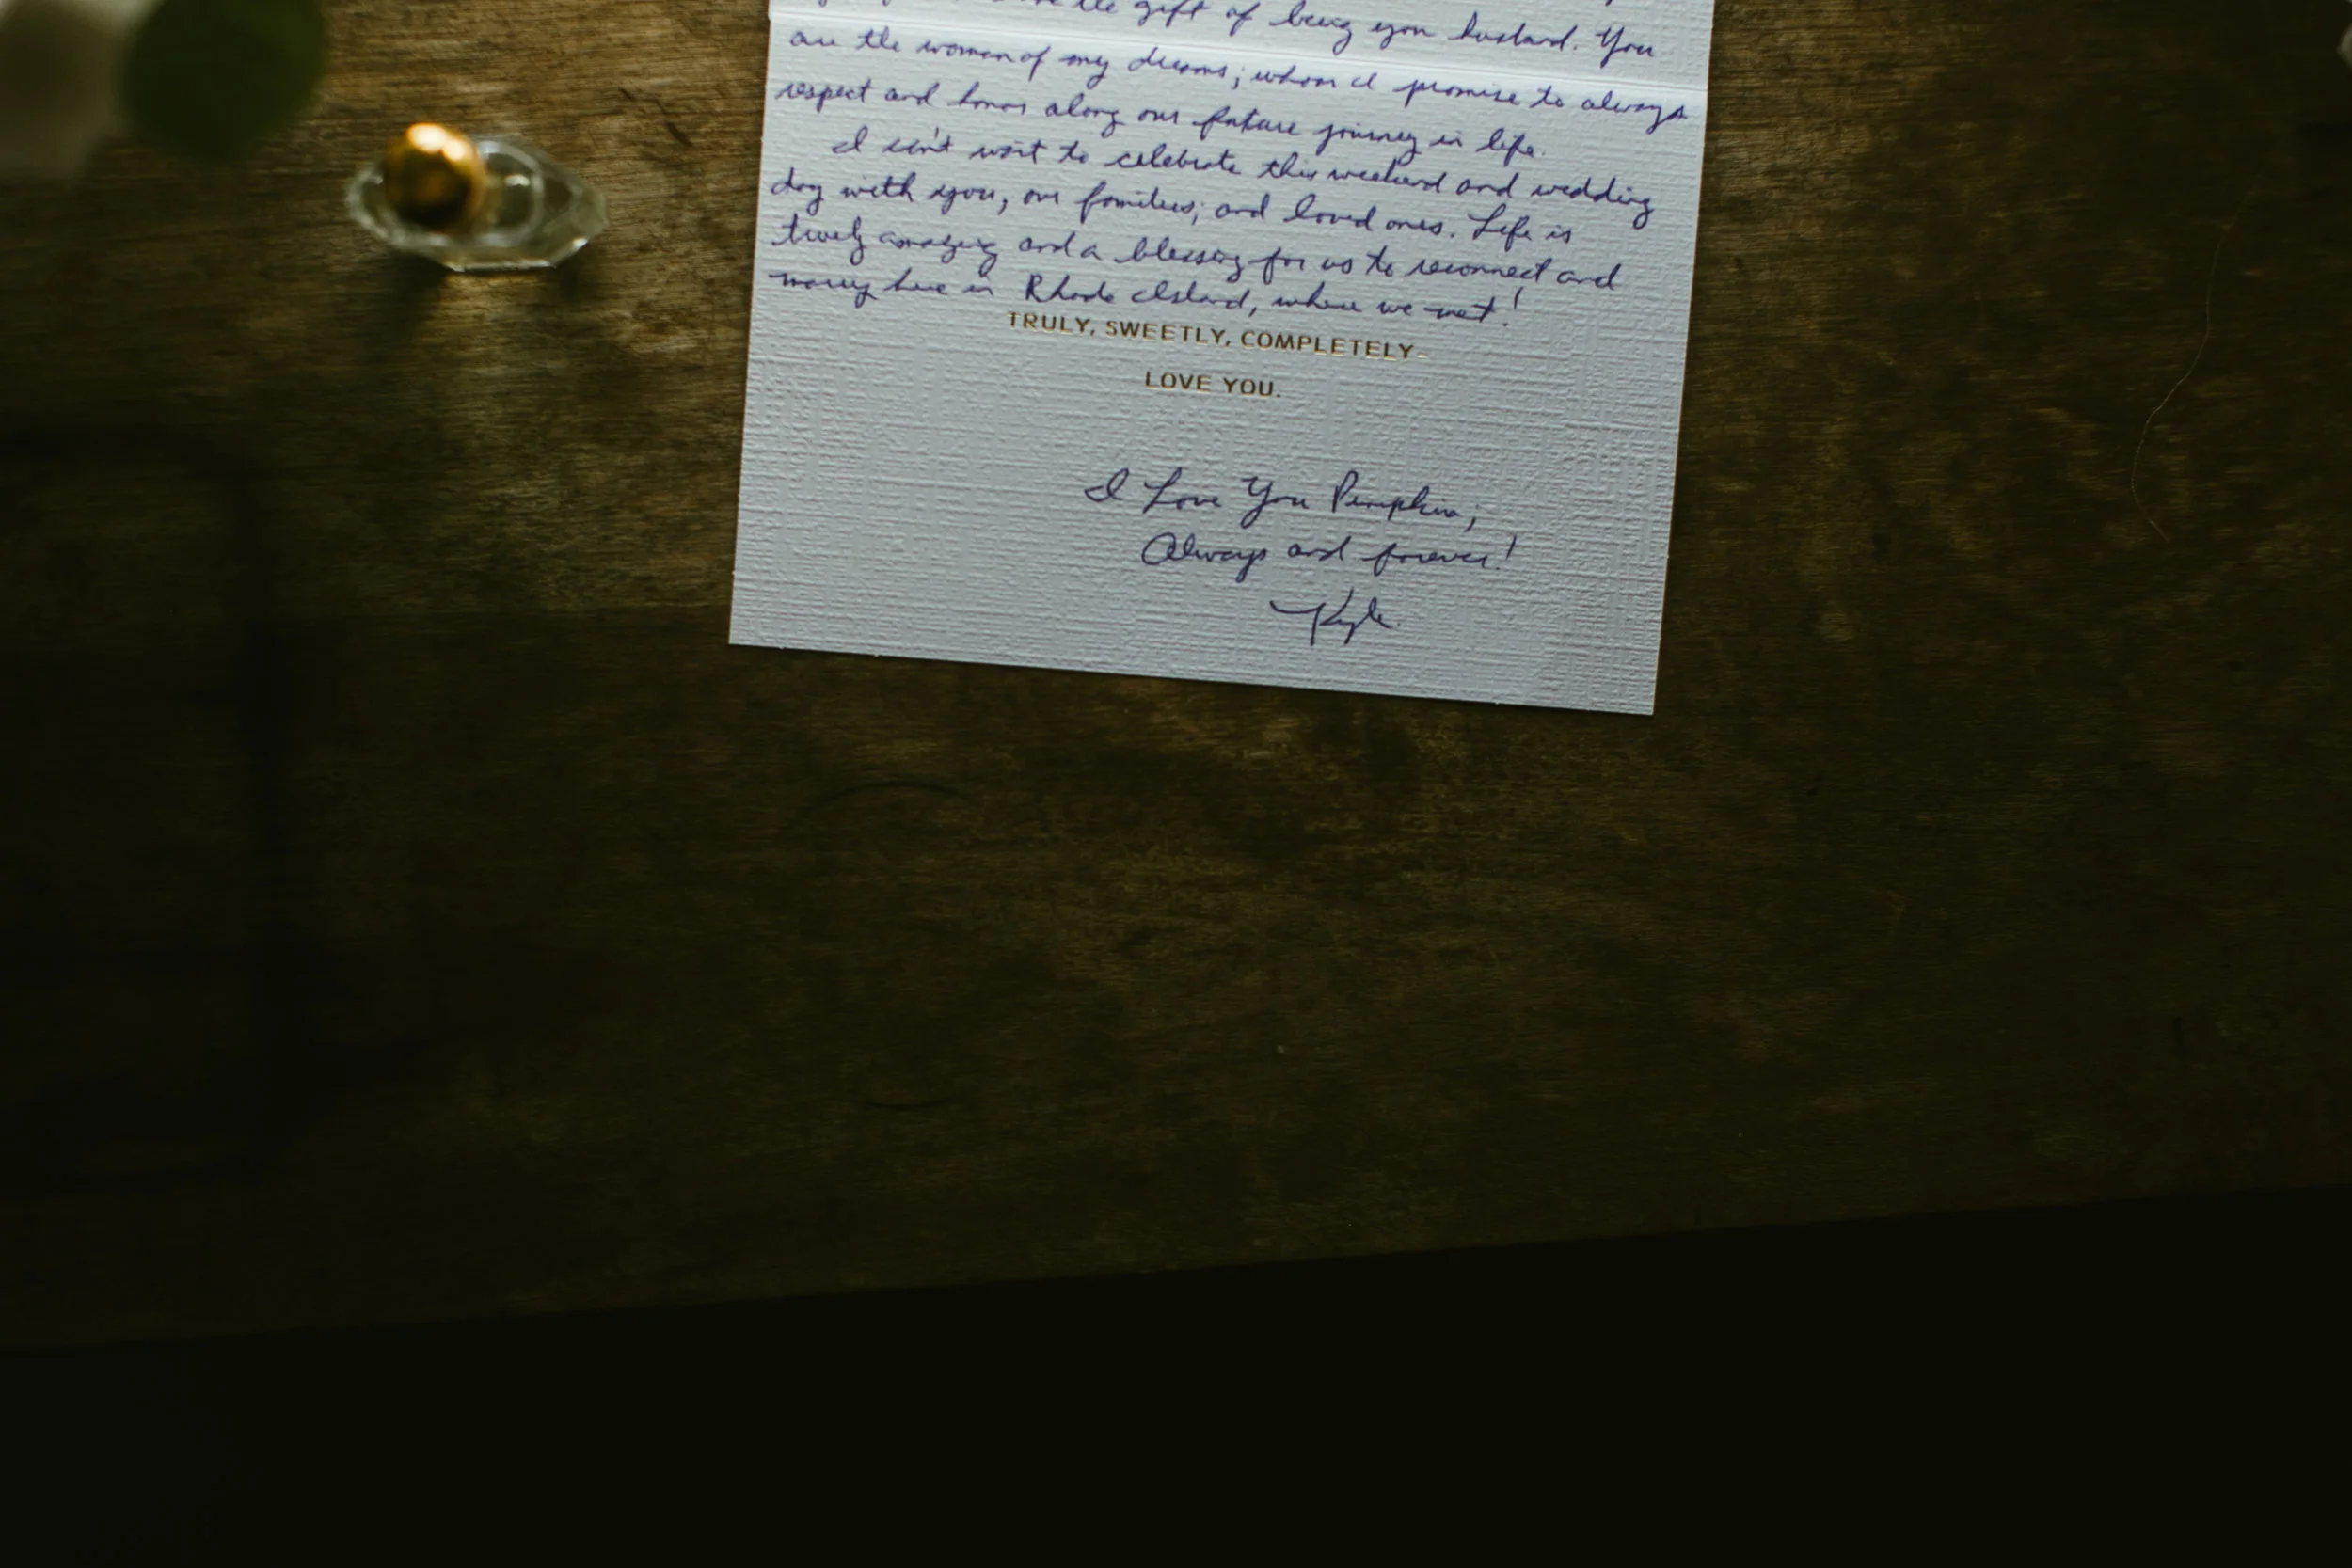 the gift of being you husband. You
are the woman of my dreams; whom I promise to always
respect and honor along our future journey in life.
I can't wait to celebrate this weekend and wedding
day with you, our families, and loved ones. Life is
truely amazing and a blessing for us to reconnect and
marry here in Rhode Island, where we met!
TRULY, SWEETLY, COMPLETELY-
LOVE YOU.
I Love You Pumpkin,
Always and forever!
Kyle